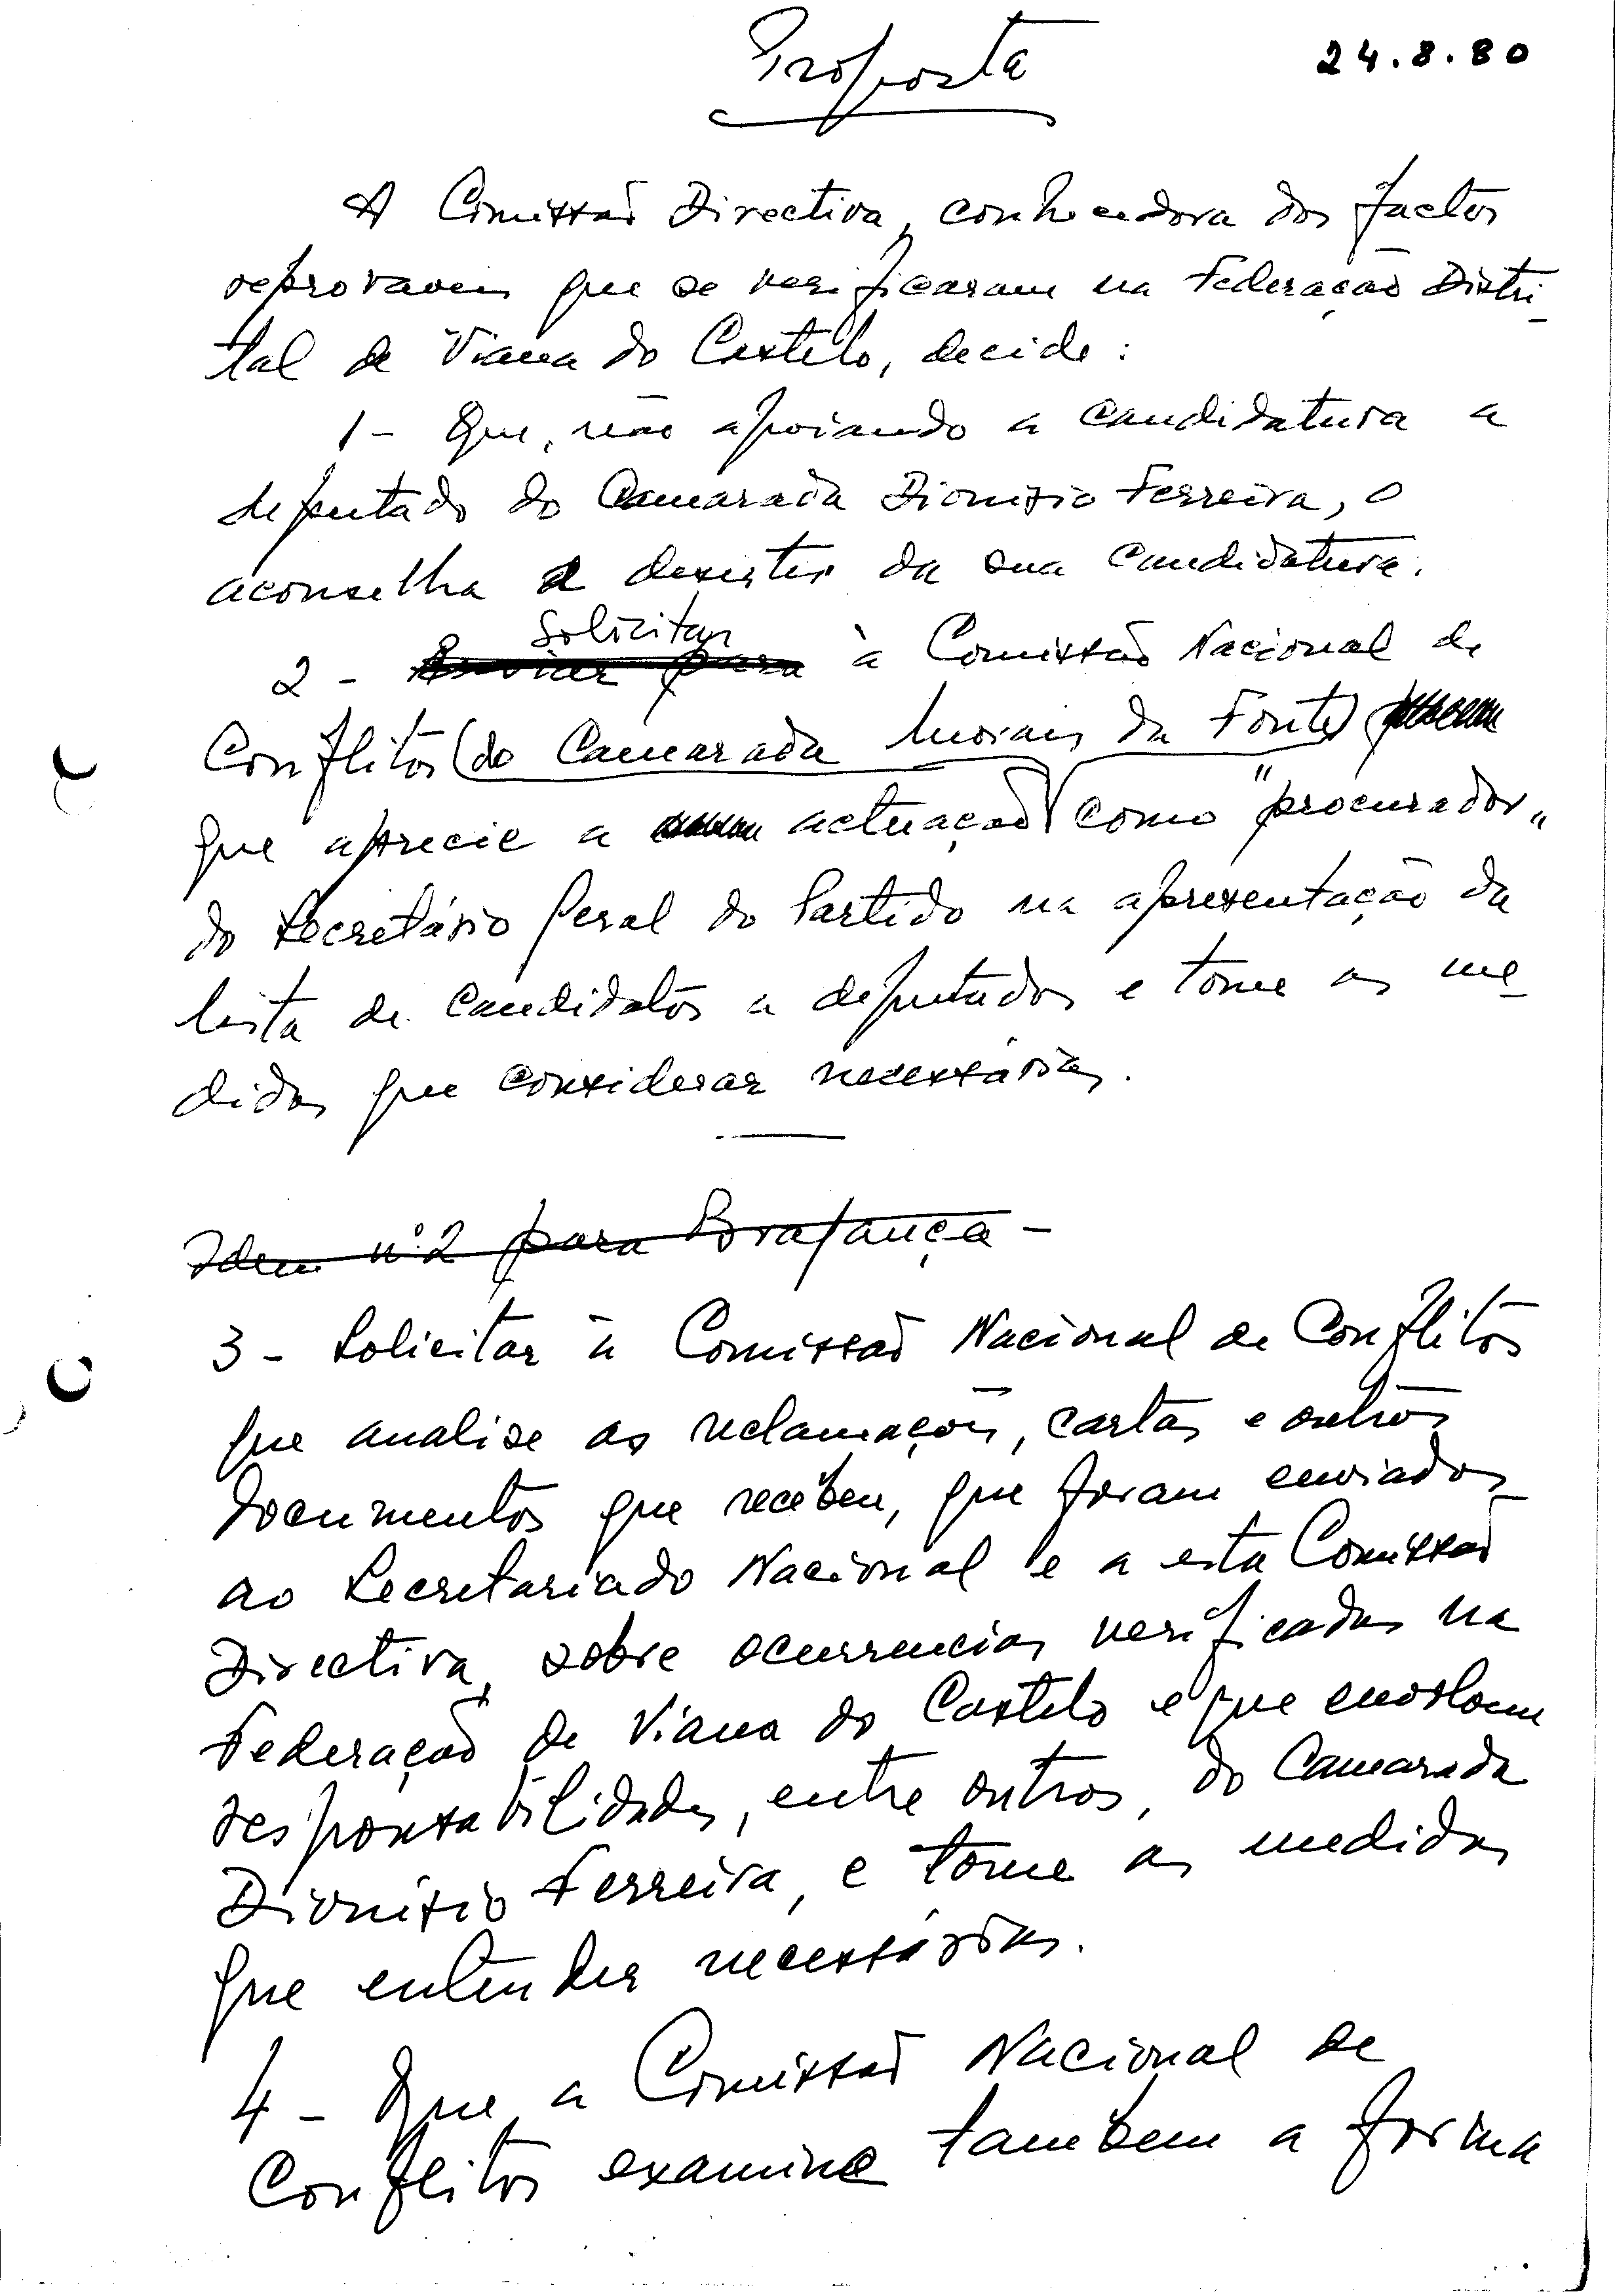 Proposta
24.8.80
A Comissão Directiva, conhecedora dos factos
reprovaveis que se verificaram na Federação Distri-
tal de Viana do Castelo, decide:
1- Que, não apoiando a candidatura a
deputado do Camarada Dionisio Ferreira, o
aconselha a desistir da sua candidatura.
Solicitar
2 - Enviar para à Comissão Nacional de
Conflitos (do Camarada Morais da Fonte)
que aprecie a actuação como "procurador"
do Secretário Geral do Partido na apresentação da
lista de candidatos a deputados e tome as me-
didas que considerar necessárias.
Idem nº 2 para Bragança -
3 - Solicitar à Comissão Nacional de Conflitos
que analise as reclamações, cartas e outros
documentos que recebeu, que foram enviados
ao Secretariado Nacional e a esta Comissão
Directiva, sobre ocurrencias verificadas na
Federação de Viana do Castelo e que envolvem
responsabilidades, entre outros, do Camarada
Dionisio Ferreira, e tome as medidas
que entender necessárias.
4 - Que a Comissão Nacional de
Conflitos examine tambem a forma